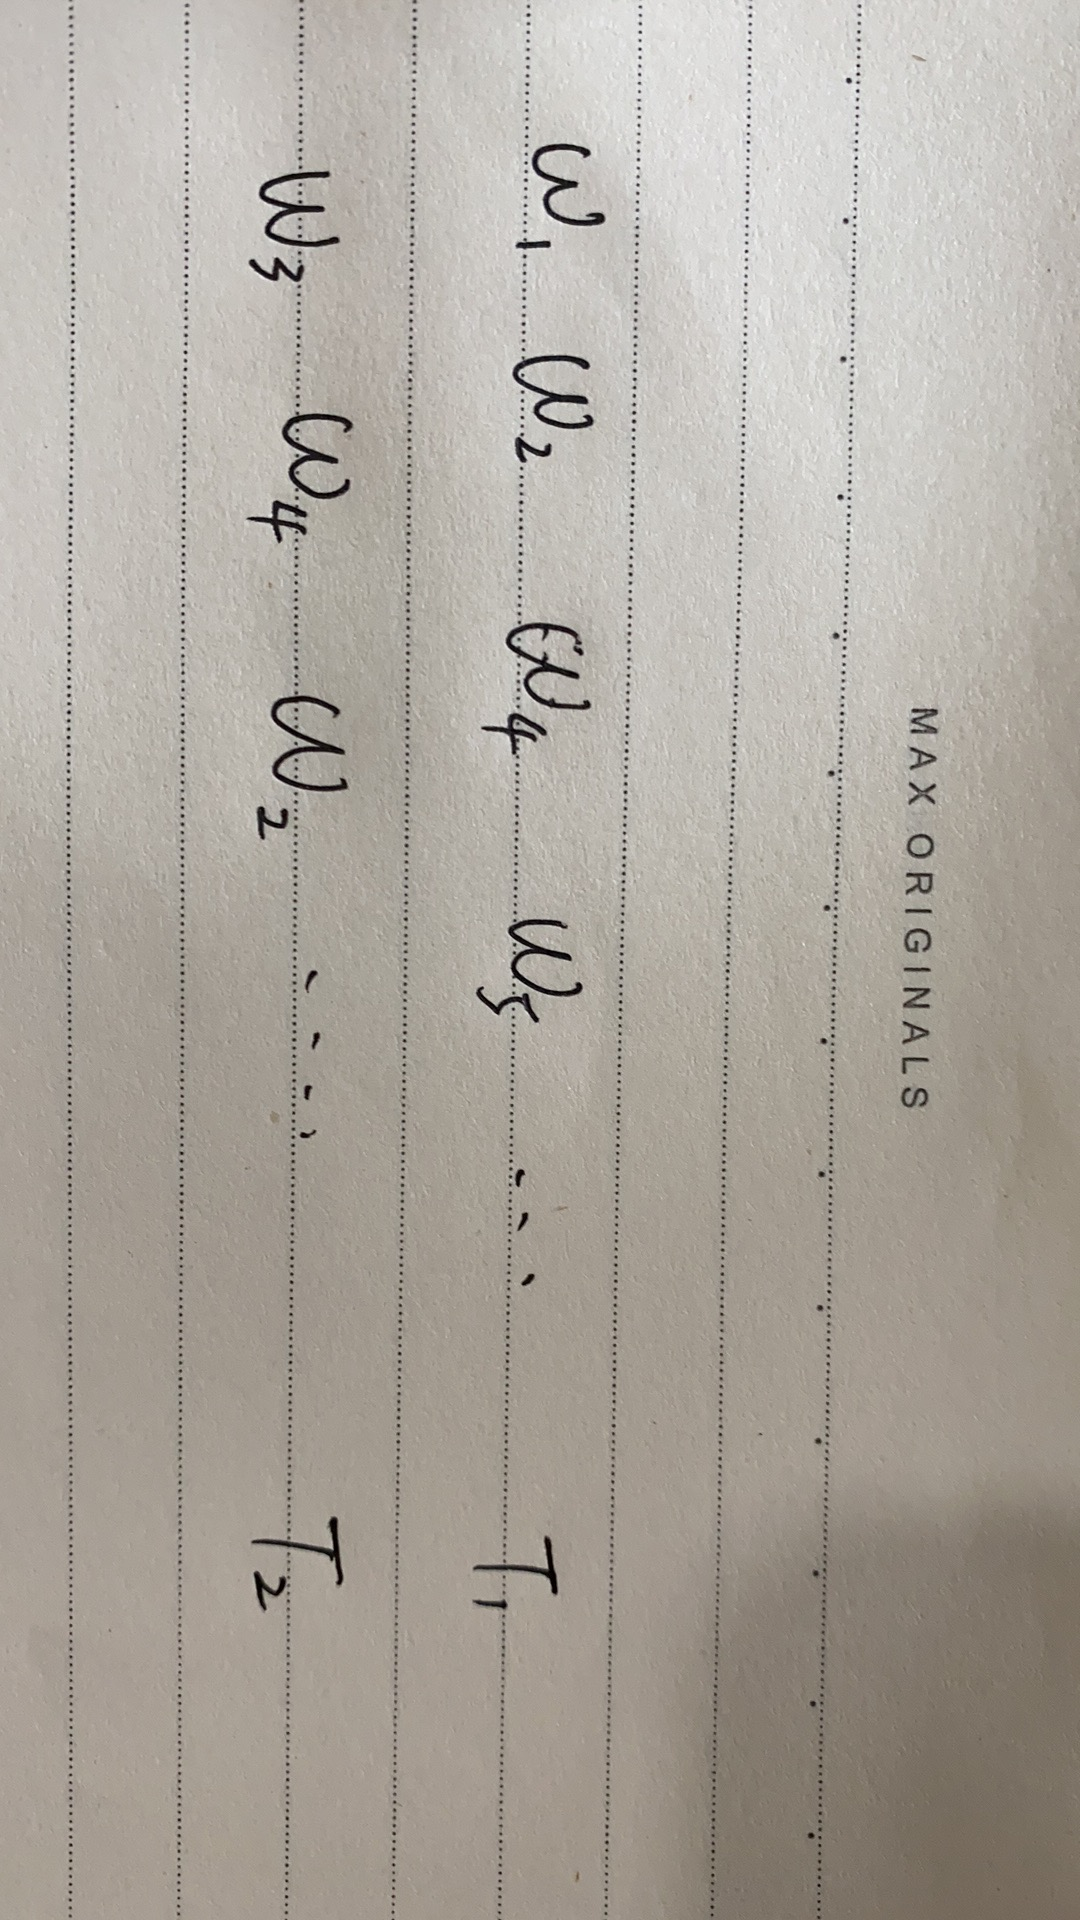 MAX ORIGINALS
W₁ W₂ W₄ W₅ ... T₁
W₃ W₄ W₂ .... T₂